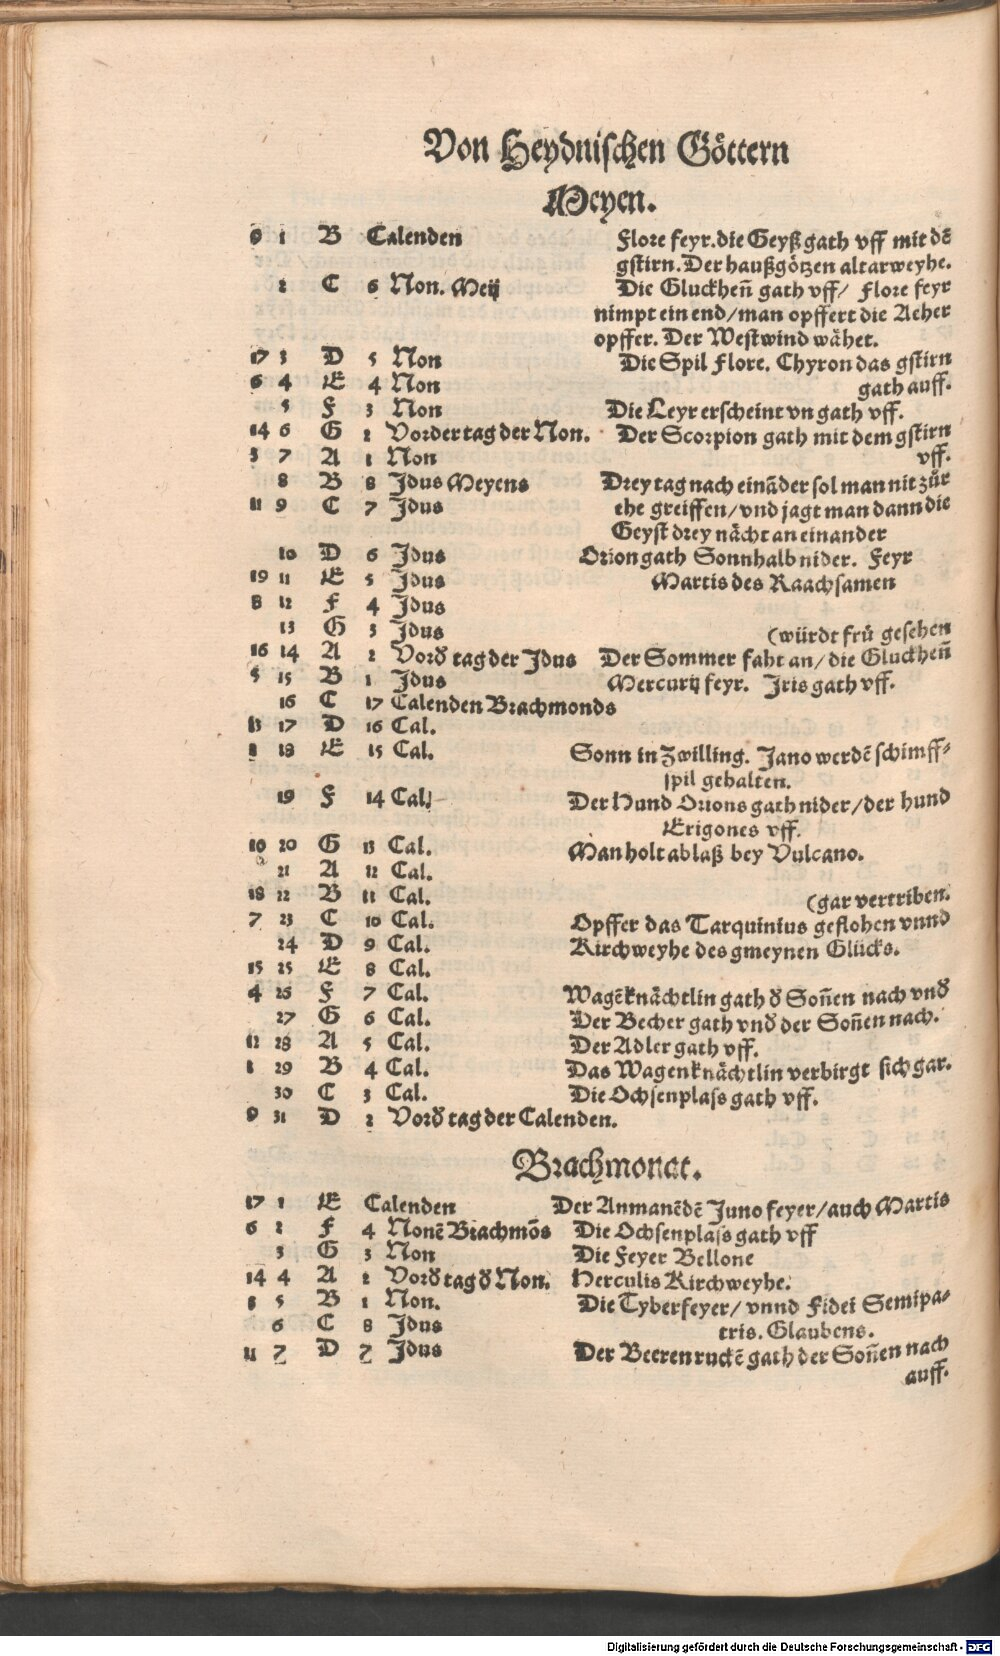 Von Heydnischen Göttern
Meyen.
9 1 B Calenden Flore feyr. die Geyß gath vff mit dē
gstirn. Der haußgötzen altarweyhe.
2 C 6 Non. Meij Die Gluckheñ gath vff/ Flore feyr
nimpt ein end/man opffert die Aeher
opffer. Der Westwind wähet.
17 3 D 5 Non Die Spil Flore. Chyron das gstirn
6 4 E 4 Non gath auff.
5 F 3 Non Die Leyr erscheint vn gath vff.
14 6 G 2 Vordertag der Non. Der Scorpion gath mit dem gstirn
3 7 A 1 Non vff.
8 B 8 Jdus Meyens Drey tag nach einãder sol man nit zůr
11 9 C 7 Jdus ehe greiffen/vnd jagt man dann die
Geyst drey nächt an einander
10 D 6 Jdus Orion gath Sonnhalb nider. Feyr
19 11 E 5 Jdus Martis des Raachsamen
8 12 F 4 Jdus
13 G 3 Jdus (würdt frů gesehen
16 14 A 2 Vorð tag der Jdus Der Sommer faht an/die Gluckheñ
5 15 B 1 Jdus Mercurij feyr. Jris gath vff.
16 C 17 Calenden Brachmonds
13 17 D 16 Cal.
2 18 E 15 Cal. Sonn in Zwilling. Jano werdē schimff-
spil gehalten.
19 F 14 Cal. Der Hund Orions gath nider/der hund
Erigones vff.
10 20 G 13 Cal. Man holt ablaß bey Vulcano.
21 A 12 Cal.
18 22 B 11 Cal. (gar vertriben.
7 23 C 10 Cal. Opffer das Tarquinius geflohen vnnd
24 D 9 Cal. Kirchweyhe des gmeynen Glücks.
15 25 E 8 Cal.
4 26 F 7 Cal. Wagēknächtlin gath ð Soñen nach vnð
27 G 6 Cal. Der Becher gath vnð der Soñen nach.
12 28 A 5 Cal. Der Adler gath vff.
1 29 B 4 Cal. Das Wagenknächtlin verbirgt sich gar.
30 C 3 Cal. Die Ochsenplass gath vff.
9 31 D 2 Vorð tag der Calenden.
Brachmonat.
17 1 E Calenden Der Anmanēdē Juno feyer/auch Martis
6 2 F 4 Nonē Brachmõs Die Ochsenplass gath vff
3 G 3 Non Die Feyer Bellone
14 4 A 2 Vorð tag ð Non. Herculis Kirchweyhe.
5 B 1 Non. Die Tyberfeyer/ vnnd Fidei Semipa-
6 C 8 Jdus tris. Glaubens.
11 7 D 7 Jdus Der Beerenruckē gath der Soñen nach
auff.
Digitalisierung gefördert durch die Deutsche Forschungsgemeinschaft - DFG